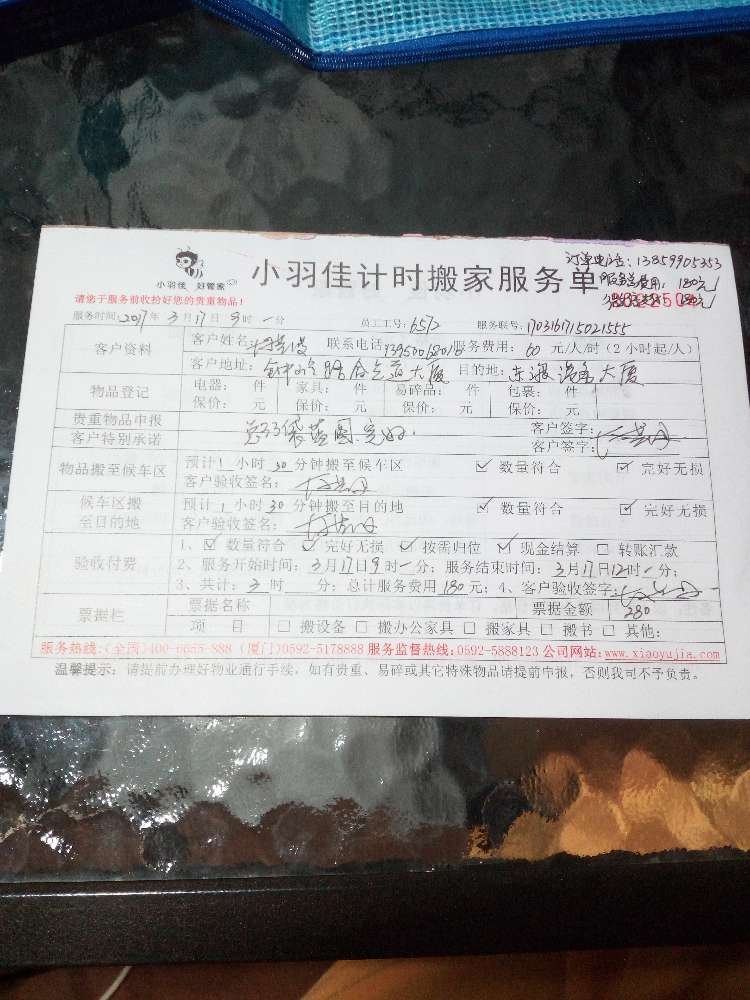 小羽佳 好管家
小羽佳计时搬家服务单
订单电话：13859905353
服务总费用：180元/
请您于服务前收拾好您的贵重物品！
服务时间:2017年3月17日9时-分 员工工号:6512 服务联号:170316171502155
客户资料
客户姓名 联系电话 服务费用：60 元/人/时（2小时起/人）
客户地址： 大厦 目的地： 大厦
物品登记
电器： 件 家具： 件 易碎品： 件 包裹： 件
保价： 元 保价： 元 保价： 元 保价： 元
贵重物品申报 客户签字：
客户特别承诺 客户签字：
物品搬至候车区
预计1小时30分钟搬至候车区 ☑数量符合 ☑完好无损
客户验收签名：
候车区搬至目的地
预计1小时30分钟搬至目的地 ☑数量符合 ☑完好无损
客户验收签名：
验收付费
1、☑数量符合 ☑完好无损 ☑按需归位 ☑现金结算 □转账汇款
2、服务开始时间：3月17日9时-分；服务结束时间：3月17日12时-分；
3、共计：3时 分；总计服务费用180元；4、客户验收签字：
票据栏
票据名称 票据金额 280
项 目 □搬设备 □搬办公家具 □搬家具 □搬书 □其他：
服务热线:(全国)400-6665-888 (厦门)0592-5178888 服务监督热线:0592-5888123 公司网站:www.xiaoyujia.com
温馨提示：请提前办理好物业通行手续，如有贵重、易碎或其它特殊物品请提前申报，否则我司不予负责。